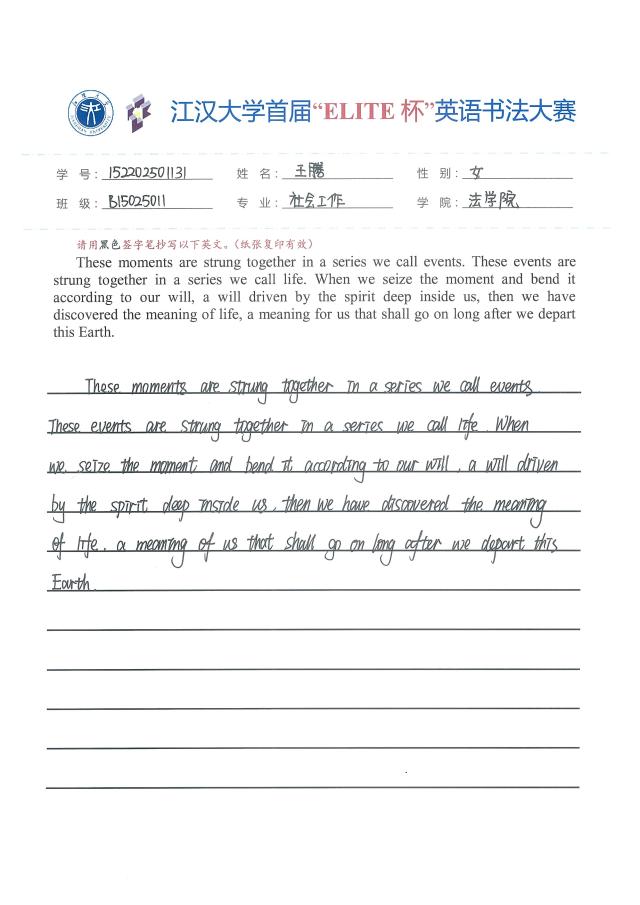 江汉大学首届“ELITE 杯”英语书法大赛
学 号: 152202501131 姓 名: 王腾 性 别: 女
班 级: B15025011 专 业: 社会工作 学 院: 法学院
请用黑色签字笔抄写以下英文。(纸张复印有效)
These moments are strung together in a series we call events. These events are
strung together in a series we call life. When we seize the moment and bend it
according to our will, a will driven by the spirit deep inside us, then we have
discovered the meaning of life, a meaning for us that shall go on long after we depart
this Earth.
These moments are strung together in a series we call events.
These events are strung together in a series we call life. When
we seize the moment and bend it according to our will, a will driven
by the spirit deep inside us, then we have discovered the meaning
of life, a meaning of us that shall go on long after we depart this
Earth.